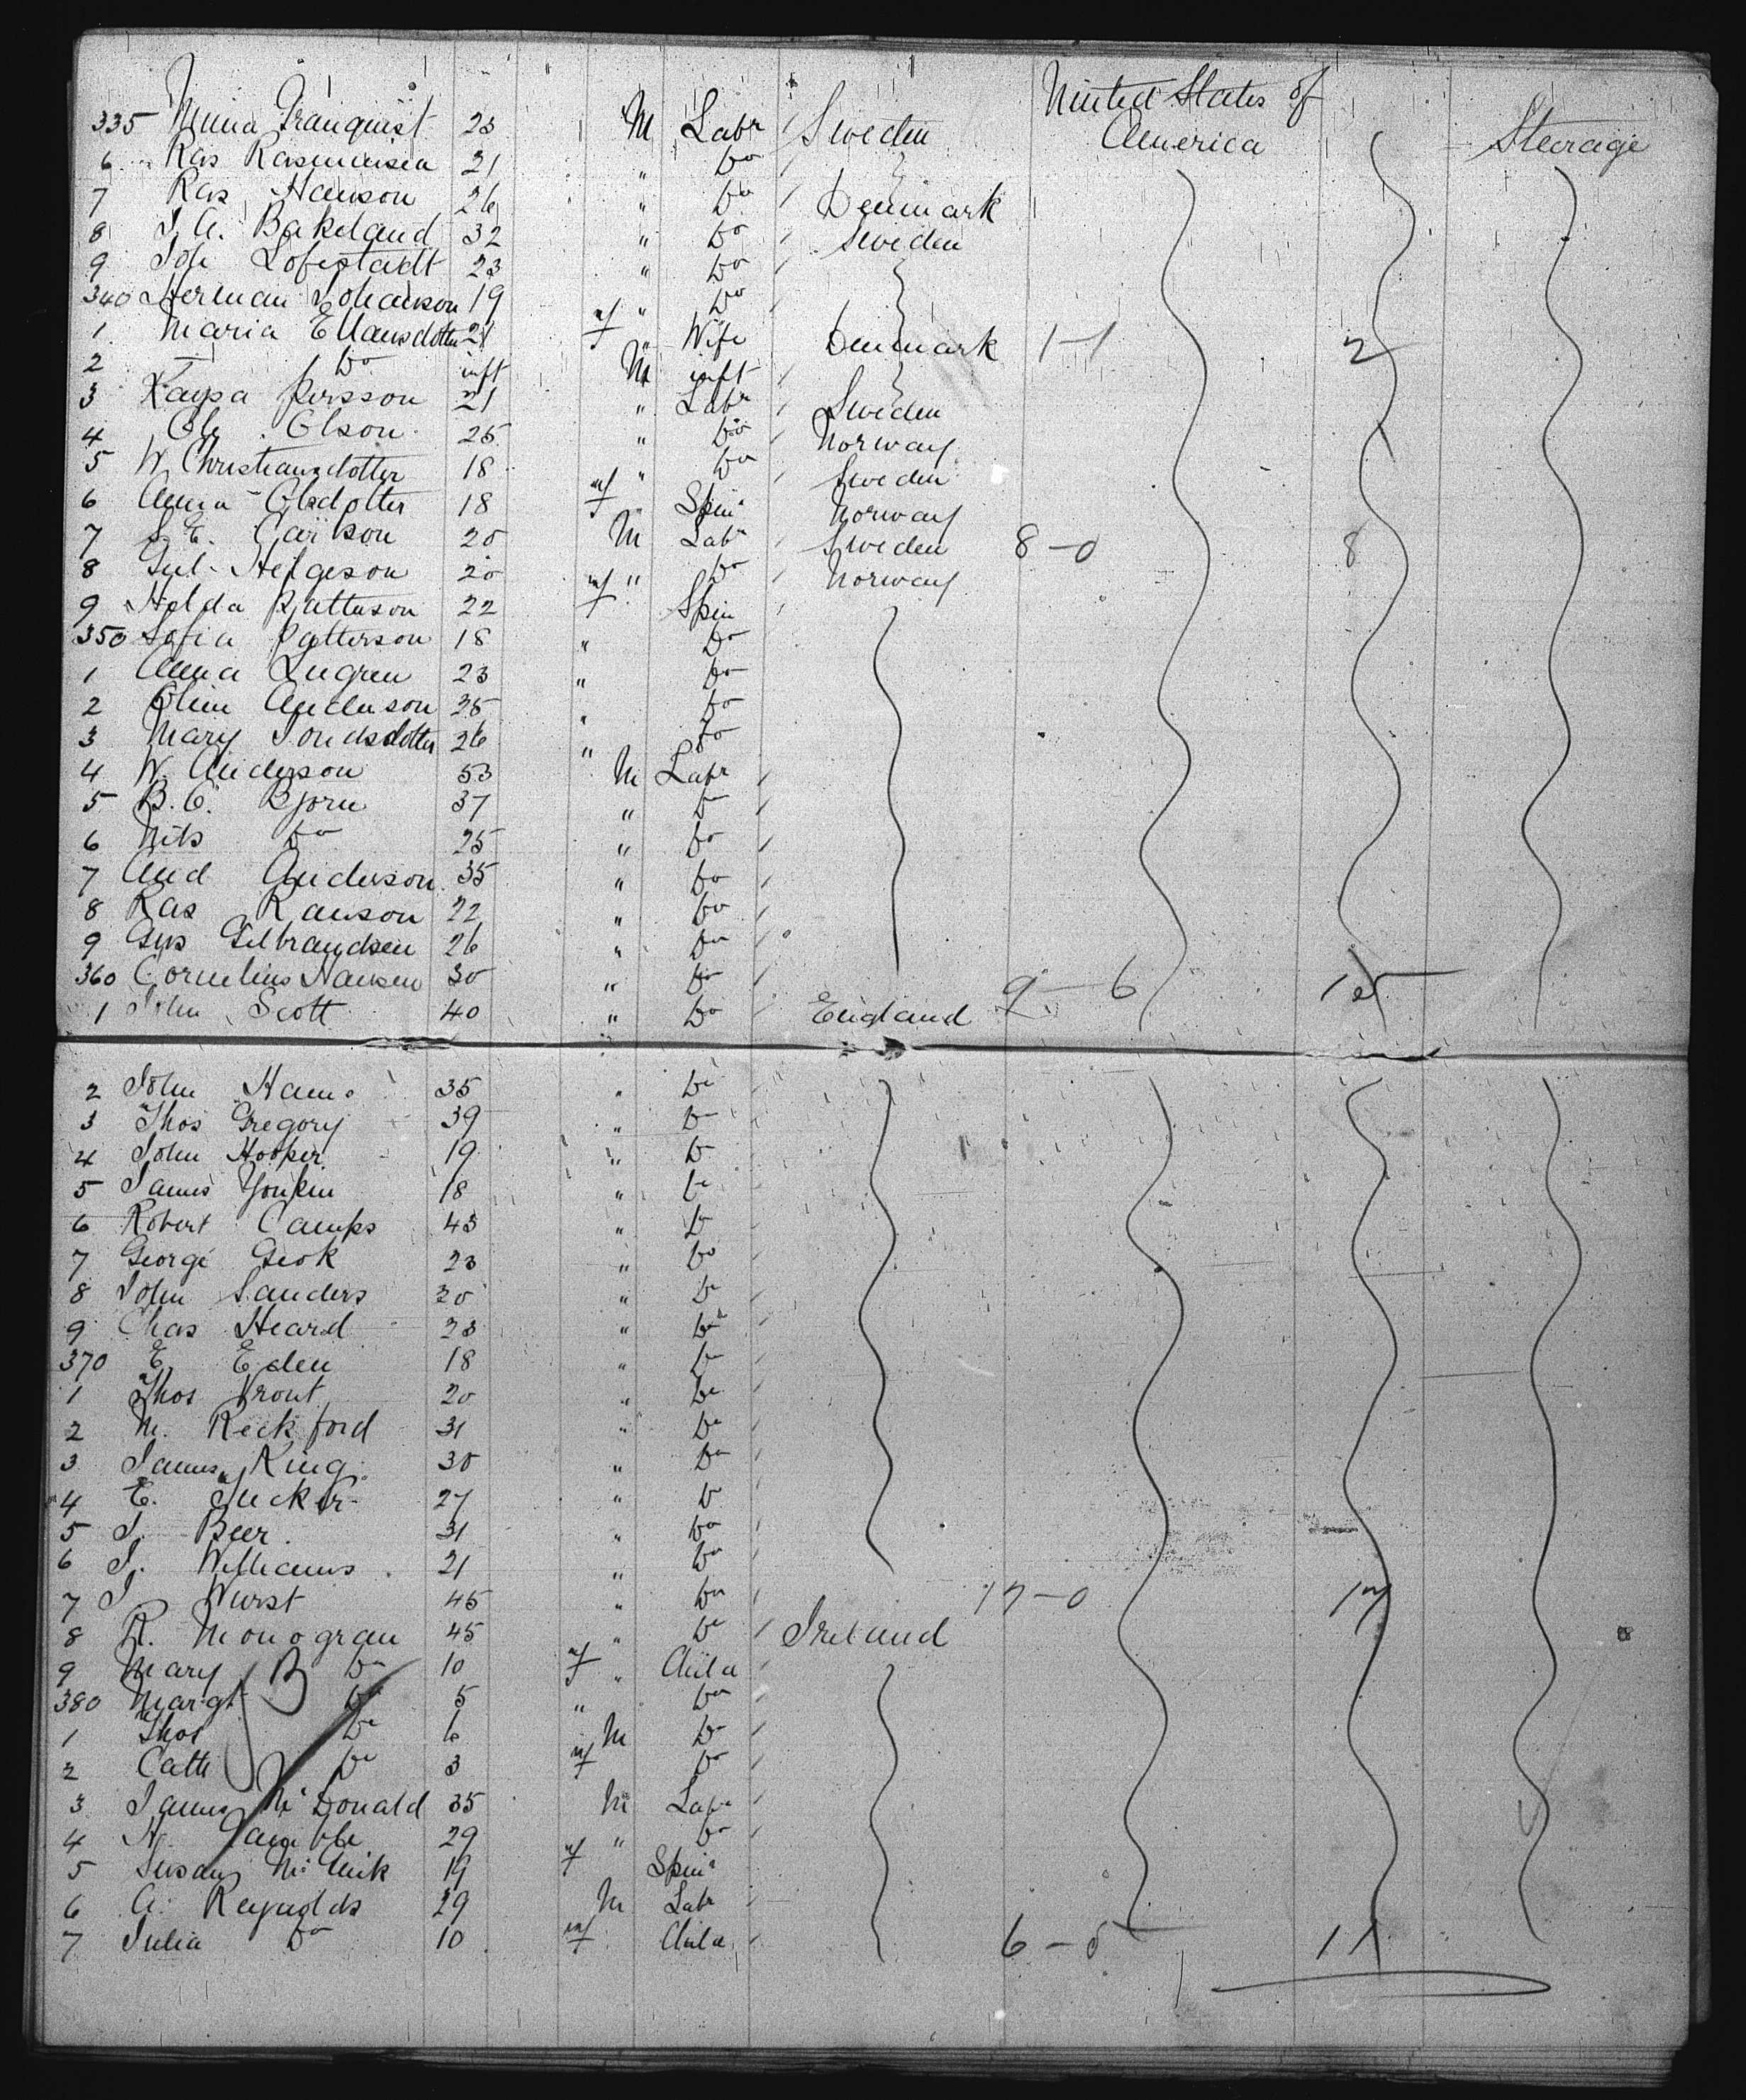 United States of
335 Minna Franquist 23 M Labr Sweden America Stearage
6 Ras Rasmusen 21 " Do
7 Ras Hanson 26 " Do Denmark
8 J. A. Bakeland 32 " Do Sweden
9 Joh Lofestadt 23 " Do
340 Herman Johanson 19 " Do
1 Maria E Hansdotter 21 f " Wife Denmark 1-1 2
2 Do inft M inft
3 Kaysa Persson 21 " Labr Sweden
4 Ole Olson 25 " Do Norway
5 W. Christiansdotter 18 " Do Sweden
6 Anna Olsdotter 18 f Spinr Norway
7 S. E. Carlson 20 M Labr Sweden 8-0 8
8 Gul. Helgeson 20 " Do Norway
9 Holda Patterson 22 f Spin
350 Sofia Patterson 18 " Do
1 Anna Lugren 23 " Do
2 Oline Anderson 25 " Do
3 Mary Jonasdotter 26 " Do
4 W. Anderson 53 M Labr
5 B. C. Bjorn 37 " Do
6 Nils Do 25 " Do
7 And Anderson 35 " Do
8 Ras Ranson 22 " Do
9 Gus Gilbrandsen 26 " Do
360 Cornelius Hansen 30 " Do 9-6 15
1 John Scott 40 " Do England
2 John Ham 35 " Do
3 Thos Gregory 39 " Do
4 John Hooper 19 " Do
5 James Yonken 18 " Do
6 Robert Camps 43 " Do
7 George Geok 23 " Do
8 John Sanders 30 " Do
9 Chas Heard 23 " Do
370 E. Eden 18 " Do
1 Thos Vront 20 " Do
2 M. Reckford 31 " Do
3 James King 30 " Do
4 E. Tucker 27 " Do
5 J. Beer 31 " Do
6 J. Williams 21 " Do
7 J. Wurst 45 " Do 17-0 17
8 R. Monogran 45 " Do Ireland
9 Mary Do 10 f " Child
380 Margt Do 5 " Do
1 Thos Do 6 M Do
2 Cath Do 3 f Do
3 James McDonald 35 M Labr
4 H. Gamble 29 " Do
5 Susan 19 f Spinr
6 A. Reynolds 29 M Labr
7 Julia Do 10 f Child 6-5 11